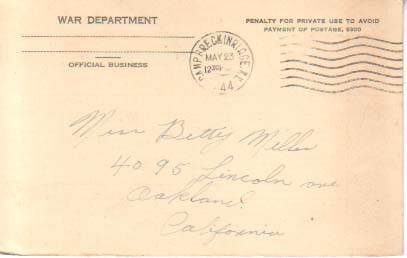 WAR DEPARTMENT
OFFICIAL BUSINESS
PENALTY FOR PRIVATE USE TO AVOID
PAYMENT OF POSTAGE, $300
CAMP BRECKINRIDGE, KY.
MAY 23
1944
Miss Betty Miller
4095 Lincoln ave
Oakland
California